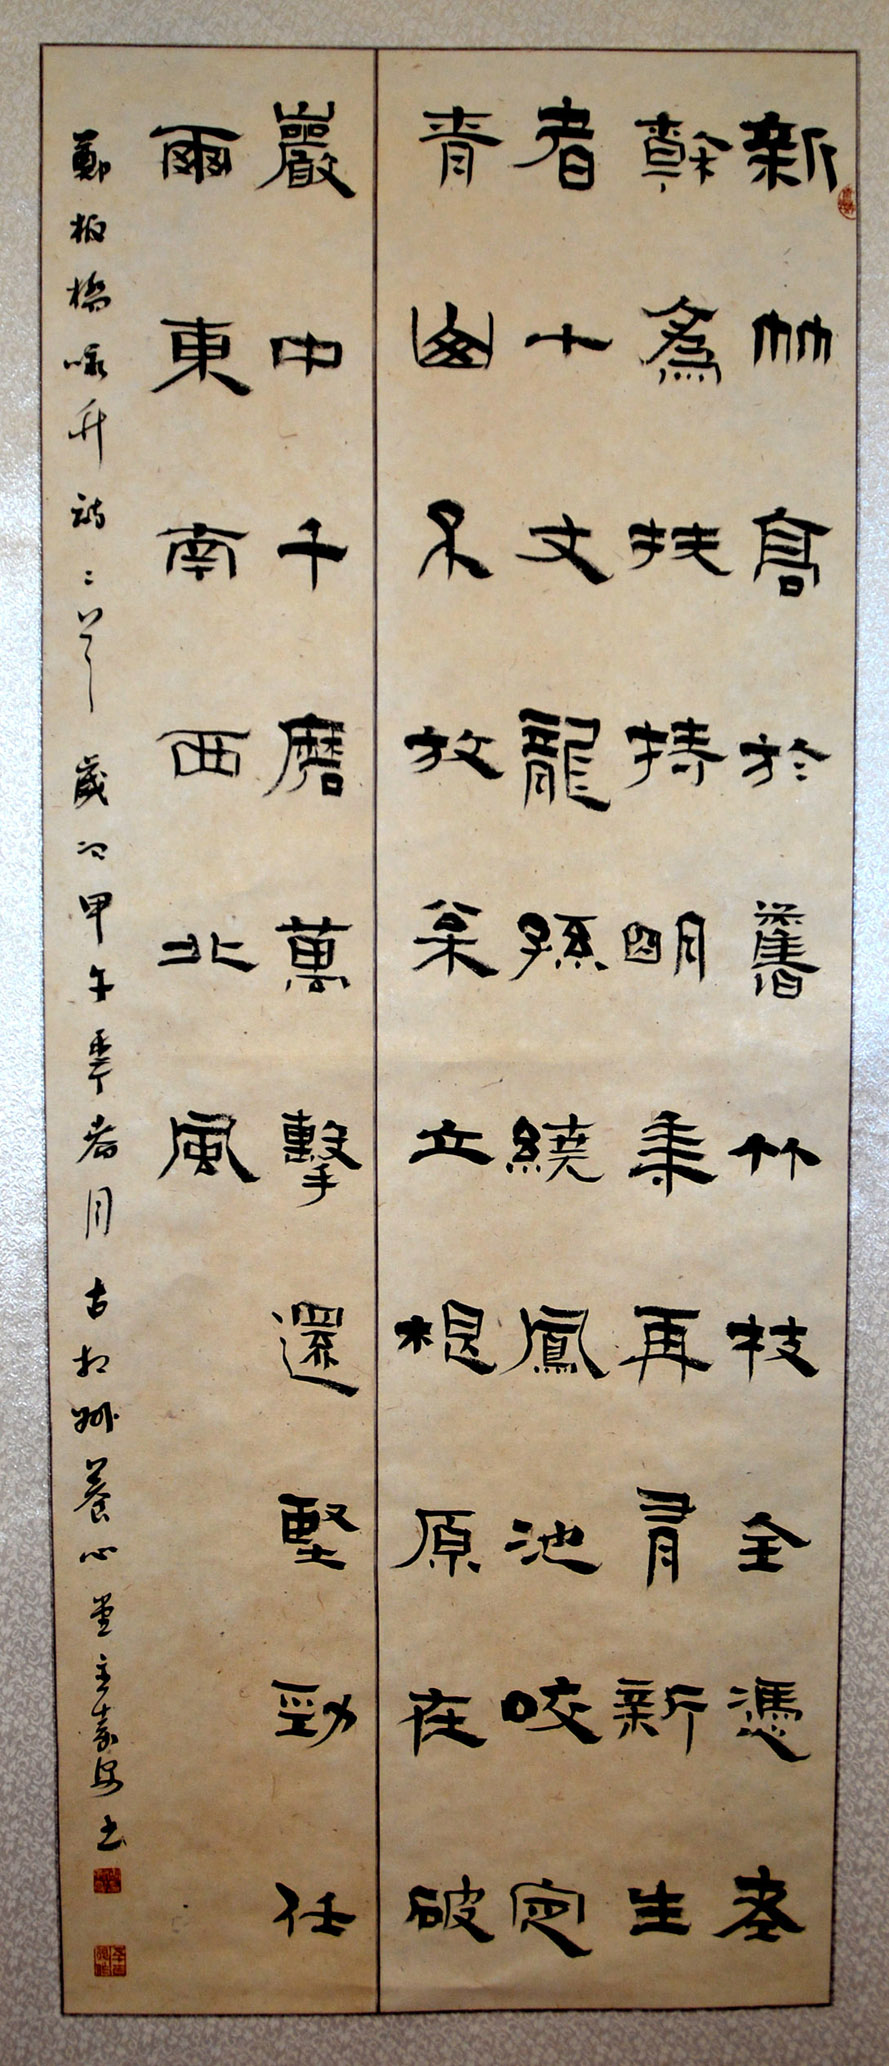 新竹高於舊竹枝全憑老
幹為扶持明年再有新生
者十丈龍孫繞鳳池咬定
青山不放枀立根原在破
巖中千磨萬擊還堅勁任
爾東南西北風
鄭板橋咏竹詩二首 歲次甲午 月 古相州養心堂主 書